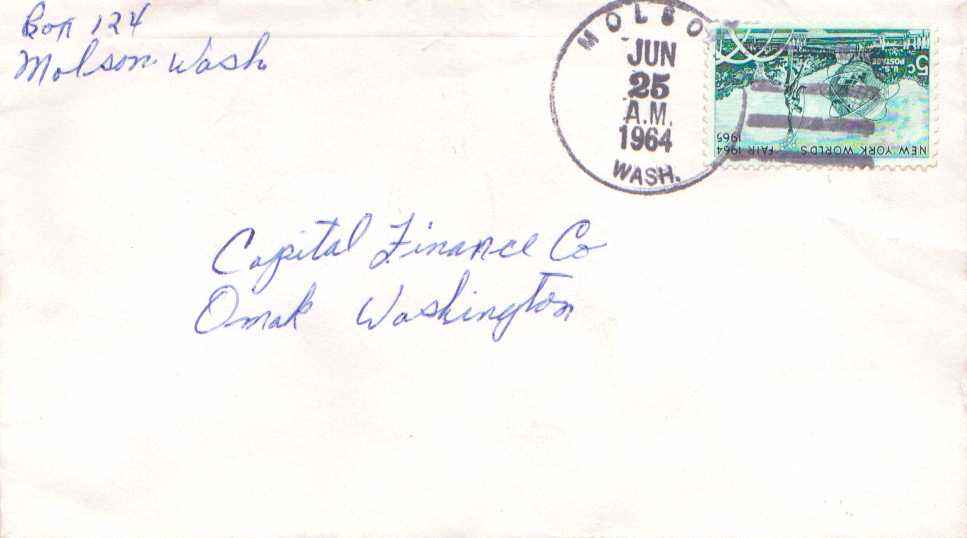 Box 124
Molson Wash
MOLSO
JUN
25
A.M.
1964
WASH.
5c
U.S. POSTAGE
NEW YORK WORLDS FAIR 1964
1965
Capital Finance Co
Omak Washington